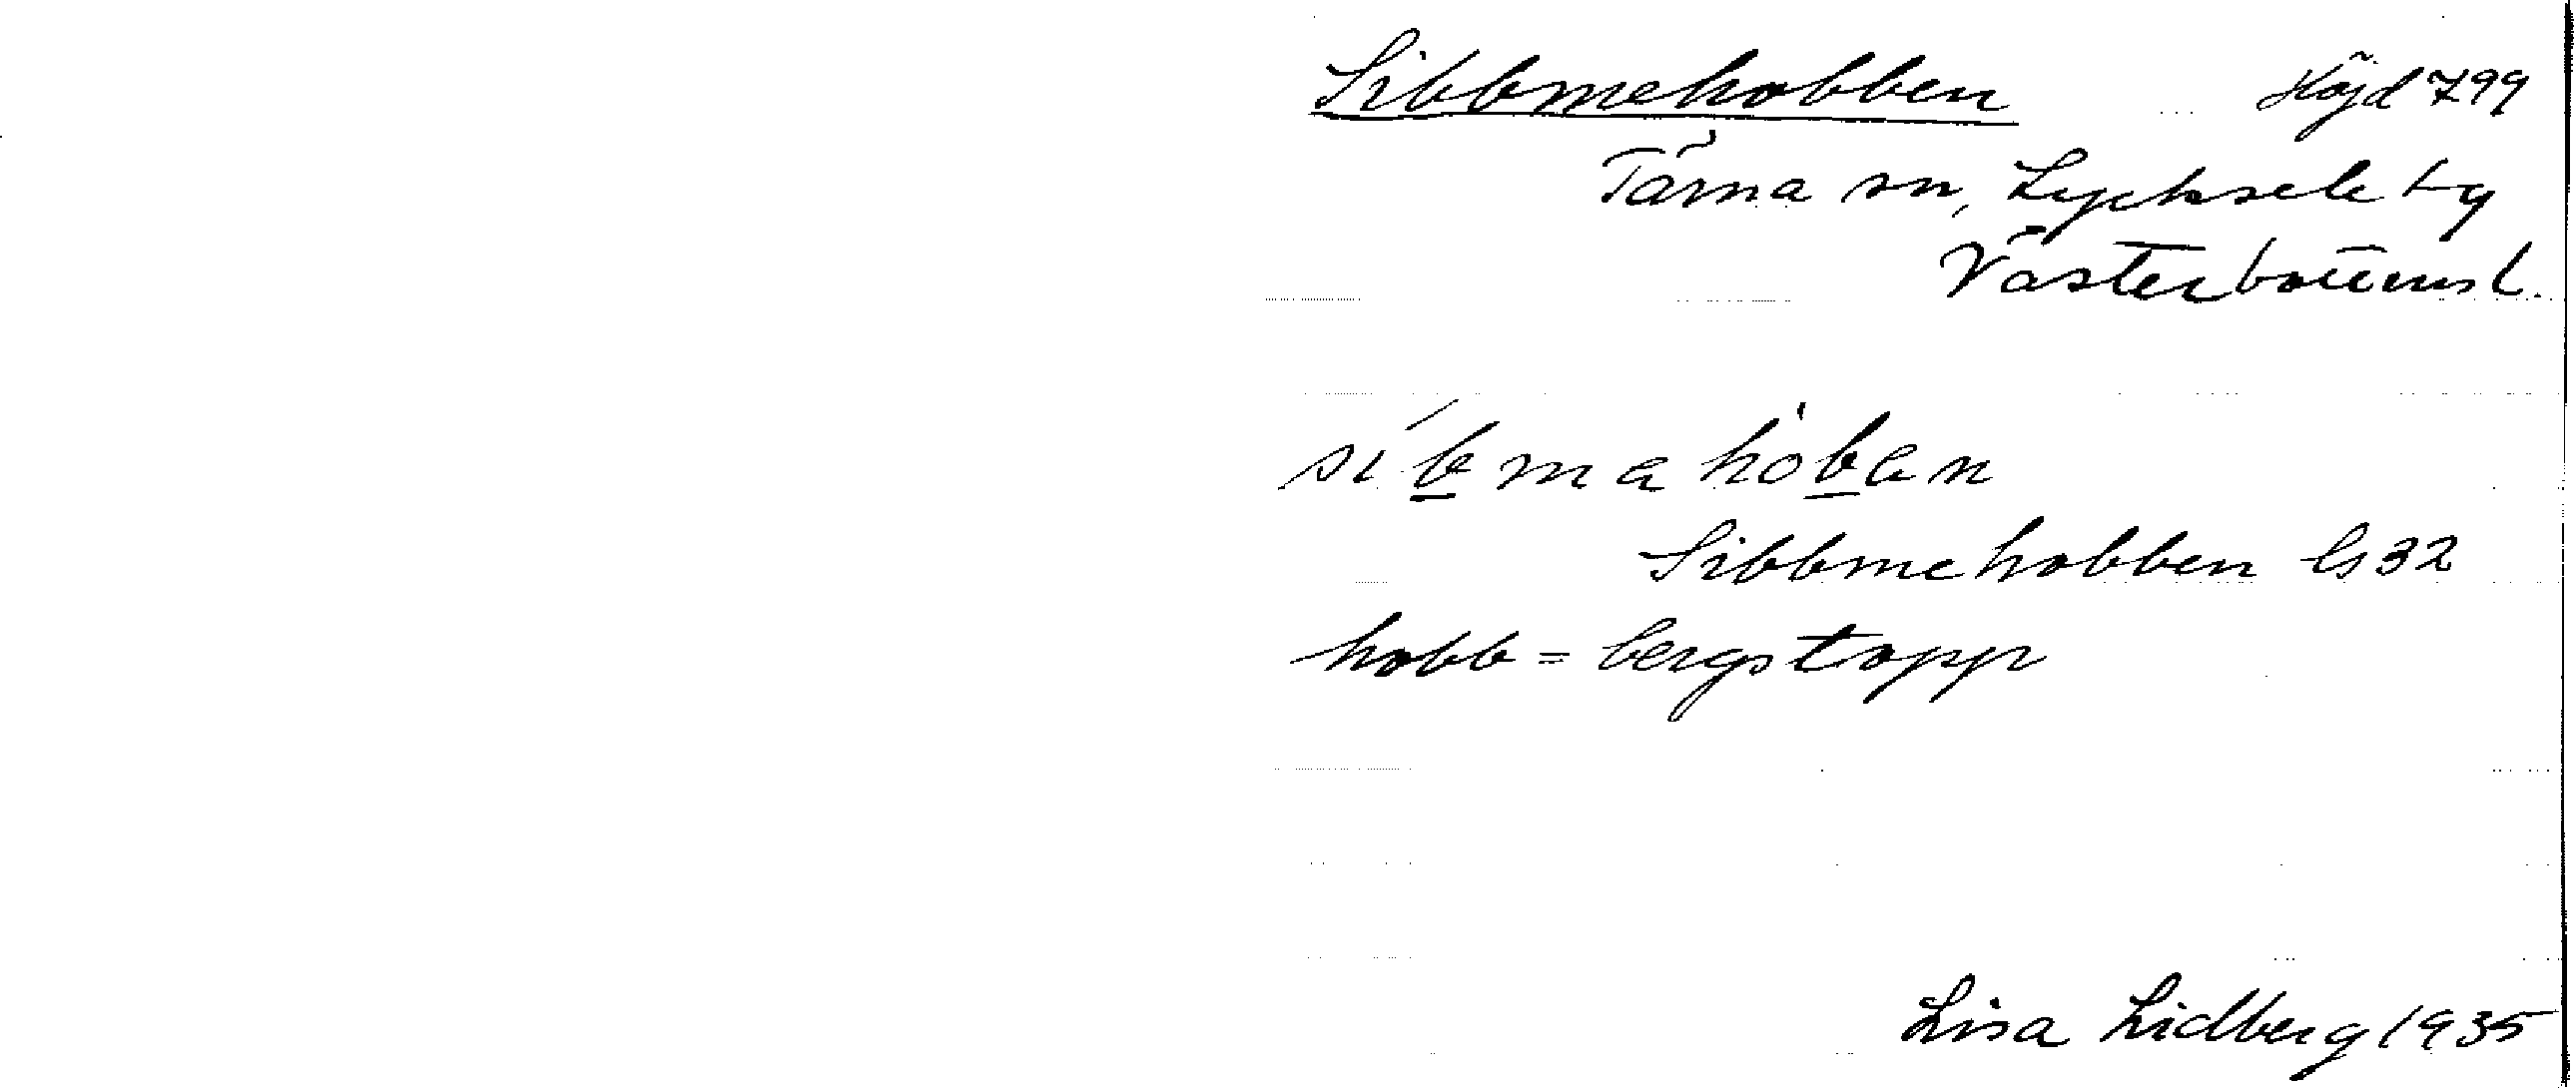 Sibbmehobben Höjd 799
Tärna sn, Lycksele tg
Västerbottens l.
sìb̲mahòb̲an
Sibbmehobben Gs 32
hobb = bergstopp
Lisa Lidberg 1935